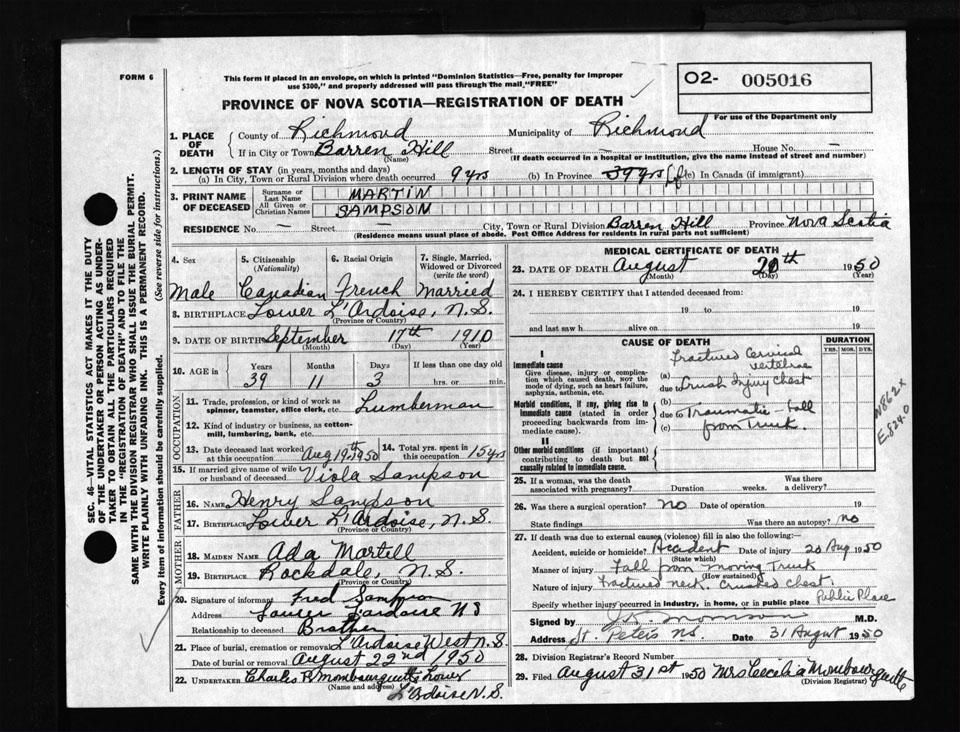 FORM 6
This form if placed in an envelope, on which is printed "Dominion Statistics—Free, penalty for improper
use $300," and properly addressed will pass through the mail "FREE"
O2- 005016
For use of the Department only
PROVINCE OF NOVA SCOTIA—REGISTRATION OF DEATH
1. PLACE OF DEATH County of Richmond Municipality of Richmond
If in City or Town Barren Hill Street — House No. —
(Name) (If death occurred in a hospital or institution, give the name instead of street and number)
2. LENGTH OF STAY (in years, months and days)
(a) In City, Town or Rural Division where death occurred 9 yrs (b) In Province 39 yrs (c) In Canada (if immigrant)
3. PRINT NAME OF DECEASED Surname or Last Name MARTIN
All Given or Christian Names SAMPSON
RESIDENCE No. — Street — City, Town or Rural Division Barren Hill Province Nova Scotia
(Residence means usual place of abode. Post Office Address for residents in rural parts not sufficient)
4. Sex Male
5. Citizenship (Nationality) Canadian
6. Racial Origin French
7. Single, Married, Widowed or Divorced (write the word) Married
8. BIRTHPLACE Lower L'Ardoise, N.S.
(Province or Country)
9. DATE OF BIRTH September 17th 1910
(Month) (Day) (Year)
10. AGE in Years 39 Months 11 Days 3 If less than one day old hrs. or min.
OCCUPATION
11. Trade, profession, or kind of work as spinner, teamster, office clerk, etc. Lumberman
12. Kind of industry or business, as cotton-mill, lumbering, bank, etc.
13. Date deceased last worked at this occupation Aug 19th 1950 14. Total yrs. spent in this occupation 15 yrs
15. If married give name of wife or husband of deceased Viola Sampson
FATHER
16. NAME Henry Sampson
17. BIRTHPLACE Lower L'Ardoise, N.S.
(Province or Country)
MOTHER
18. MAIDEN NAME Ada Martell
19. BIRTHPLACE Rockdale, N.S.
(Province or Country)
20. Signature of informant Fred Sampson
Address Lower Lardoise NS
Relationship to deceased Brother
21. Place of burial, cremation or removal L'Ardoise West N.S.
Date of burial or removal August 22nd 1950
22. UNDERTAKER Charles P. Mombourquette Lower
(Name and address) L'Ardoise N.S.
MEDICAL CERTIFICATE OF DEATH
23. DATE OF DEATH August 20th 1950
(Month) (Day) (Year)
24. I HEREBY CERTIFY that I attended deceased from:
19 to 19
and last saw h alive on 19
CAUSE OF DEATH
DURATION
YRS. MOS. DYS.
I
Immediate cause
Give disease, injury or complication which caused death, NOT the mode of dying, such as heart failure, asphyxia, asthenia, etc.
(a) Fractured Cervical vertebrae
due to Crush Injury Chest
Morbid conditions, if any, giving rise to immediate cause (stated in order proceeding backwards from immediate cause).
(b)
due to Traumatic - fall
(c) from Truck.
II
Other morbid conditions (if important) contributing to death but not causally related to immediate cause.
N862X
E-834.0
25. If a woman, was the death associated with pregnancy? Duration weeks. Was there a delivery?
26. Was there a surgical operation? No Date of operation 19
State findings Was there an autopsy? No
27. If death was due to external causes (violence) fill in also the following:—
Accident, suicide or homicide? Accident Date of injury 20 Aug 1950
(State which)
Manner of injury Fall from moving Truck
(How sustained)
Nature of injury Fractured neck. Crushed Chest.
Specify whether injury occurred in industry, in home, or in public place Public Place
Signed by M.D.
Address St. Peters NS. Date 31 August 1950
28. Division Registrar's Record Number
29. Filed August 31st 1950 Mrs Cecilia Mombourquette
(Division Registrar)
SEC. 46—VITAL STATISTICS ACT MAKES IT THE DUTY
OF THE UNDERTAKER OR PERSON ACTING AS UNDERTAKER
TO OBTAIN ALL THE PARTICULARS REQUIRED
IN THE "REGISTRATION OF DEATH" AND TO FILE THE
SAME WITH THE DIVISION REGISTRAR WHO SHALL ISSUE THE BURIAL PERMIT.
WRITE PLAINLY WITH UNFADING INK. THIS IS A PERMANENT RECORD.
Every item of information should be carefully supplied. (See reverse side for instructions.)